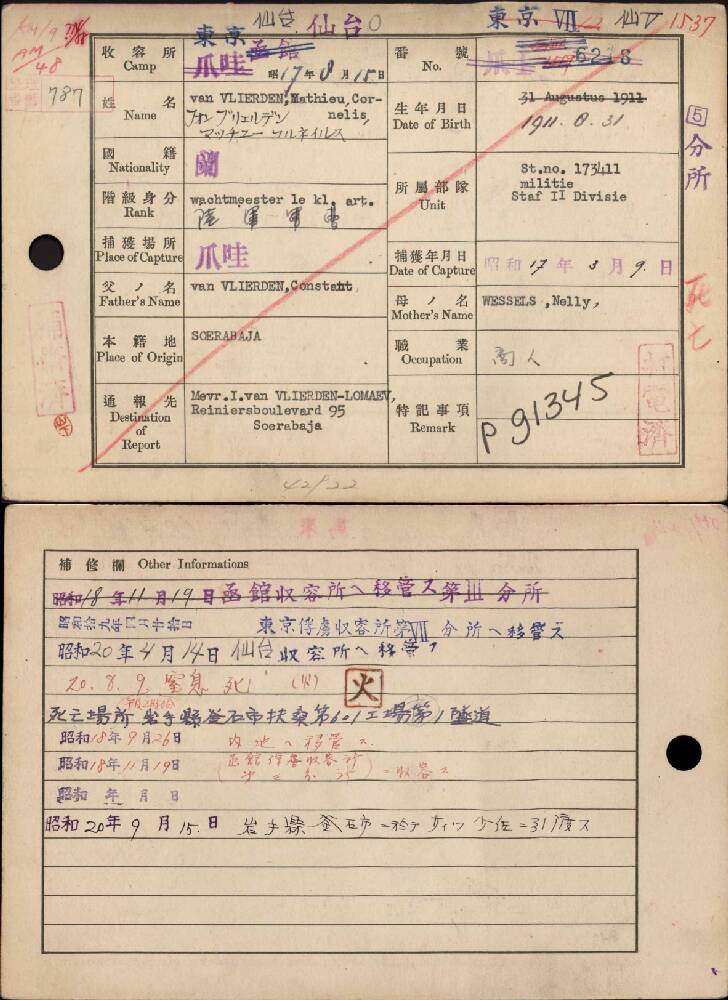 仙台 仙台
東京 函館
東京 VII 仙V 1537
AM/
48
787
收容所 Camp 爪哇 昭17年8月15日
番號 No. 6218
姓名 Name van VLIERDEN,Mathieu,Cor-
nelis,
ファンブリェルデン
マッチュー コルネイルス
生年月日 Date of Birth 31 Augustus 1911
1911. 8. 31
5分所
國籍 Nationality 蘭
階級身分 Rank wachtmeester 1e kl. art.
陸軍軍曹
所屬部隊 Unit St.no. 173411
militie
Staf II Divisie
捕獲場所 Place of Capture 爪哇
捕獲年月日 Date of Capture 昭和17年3月9日
父ノ名 Father's Name van VLIERDEN,Constant,
母ノ名 Mother's Name WESSELS ,Nelly,
死亡
本籍地 Place of Origin SOERABAJA
職業 Occupation 商人
通報先 Destination of Report Mevr.I.van VLIERDEN-LOMAEV,
Reiniersboulevard 95
Soerabaja
特記事項 Remark P91345
補修欄 Other Informations
昭和18年11月19日函館収容所ヘ移管ス第III分所
東京俘虜収容所第VII分所ヘ移管ス
昭和20年4月14日仙台収容所ヘ移管ス
20. 8. 9. 窒息死 火
死亡場所 岩手縣釜石市扶桑第601工場第1隧道
昭和18年9月26日 内地ヘ移管ス
昭和18年11月19日 函館俘虜収容所 ニ収容ス
昭和 年 月 日
昭和20年9月15日 岩手縣釜石市ニ於テ